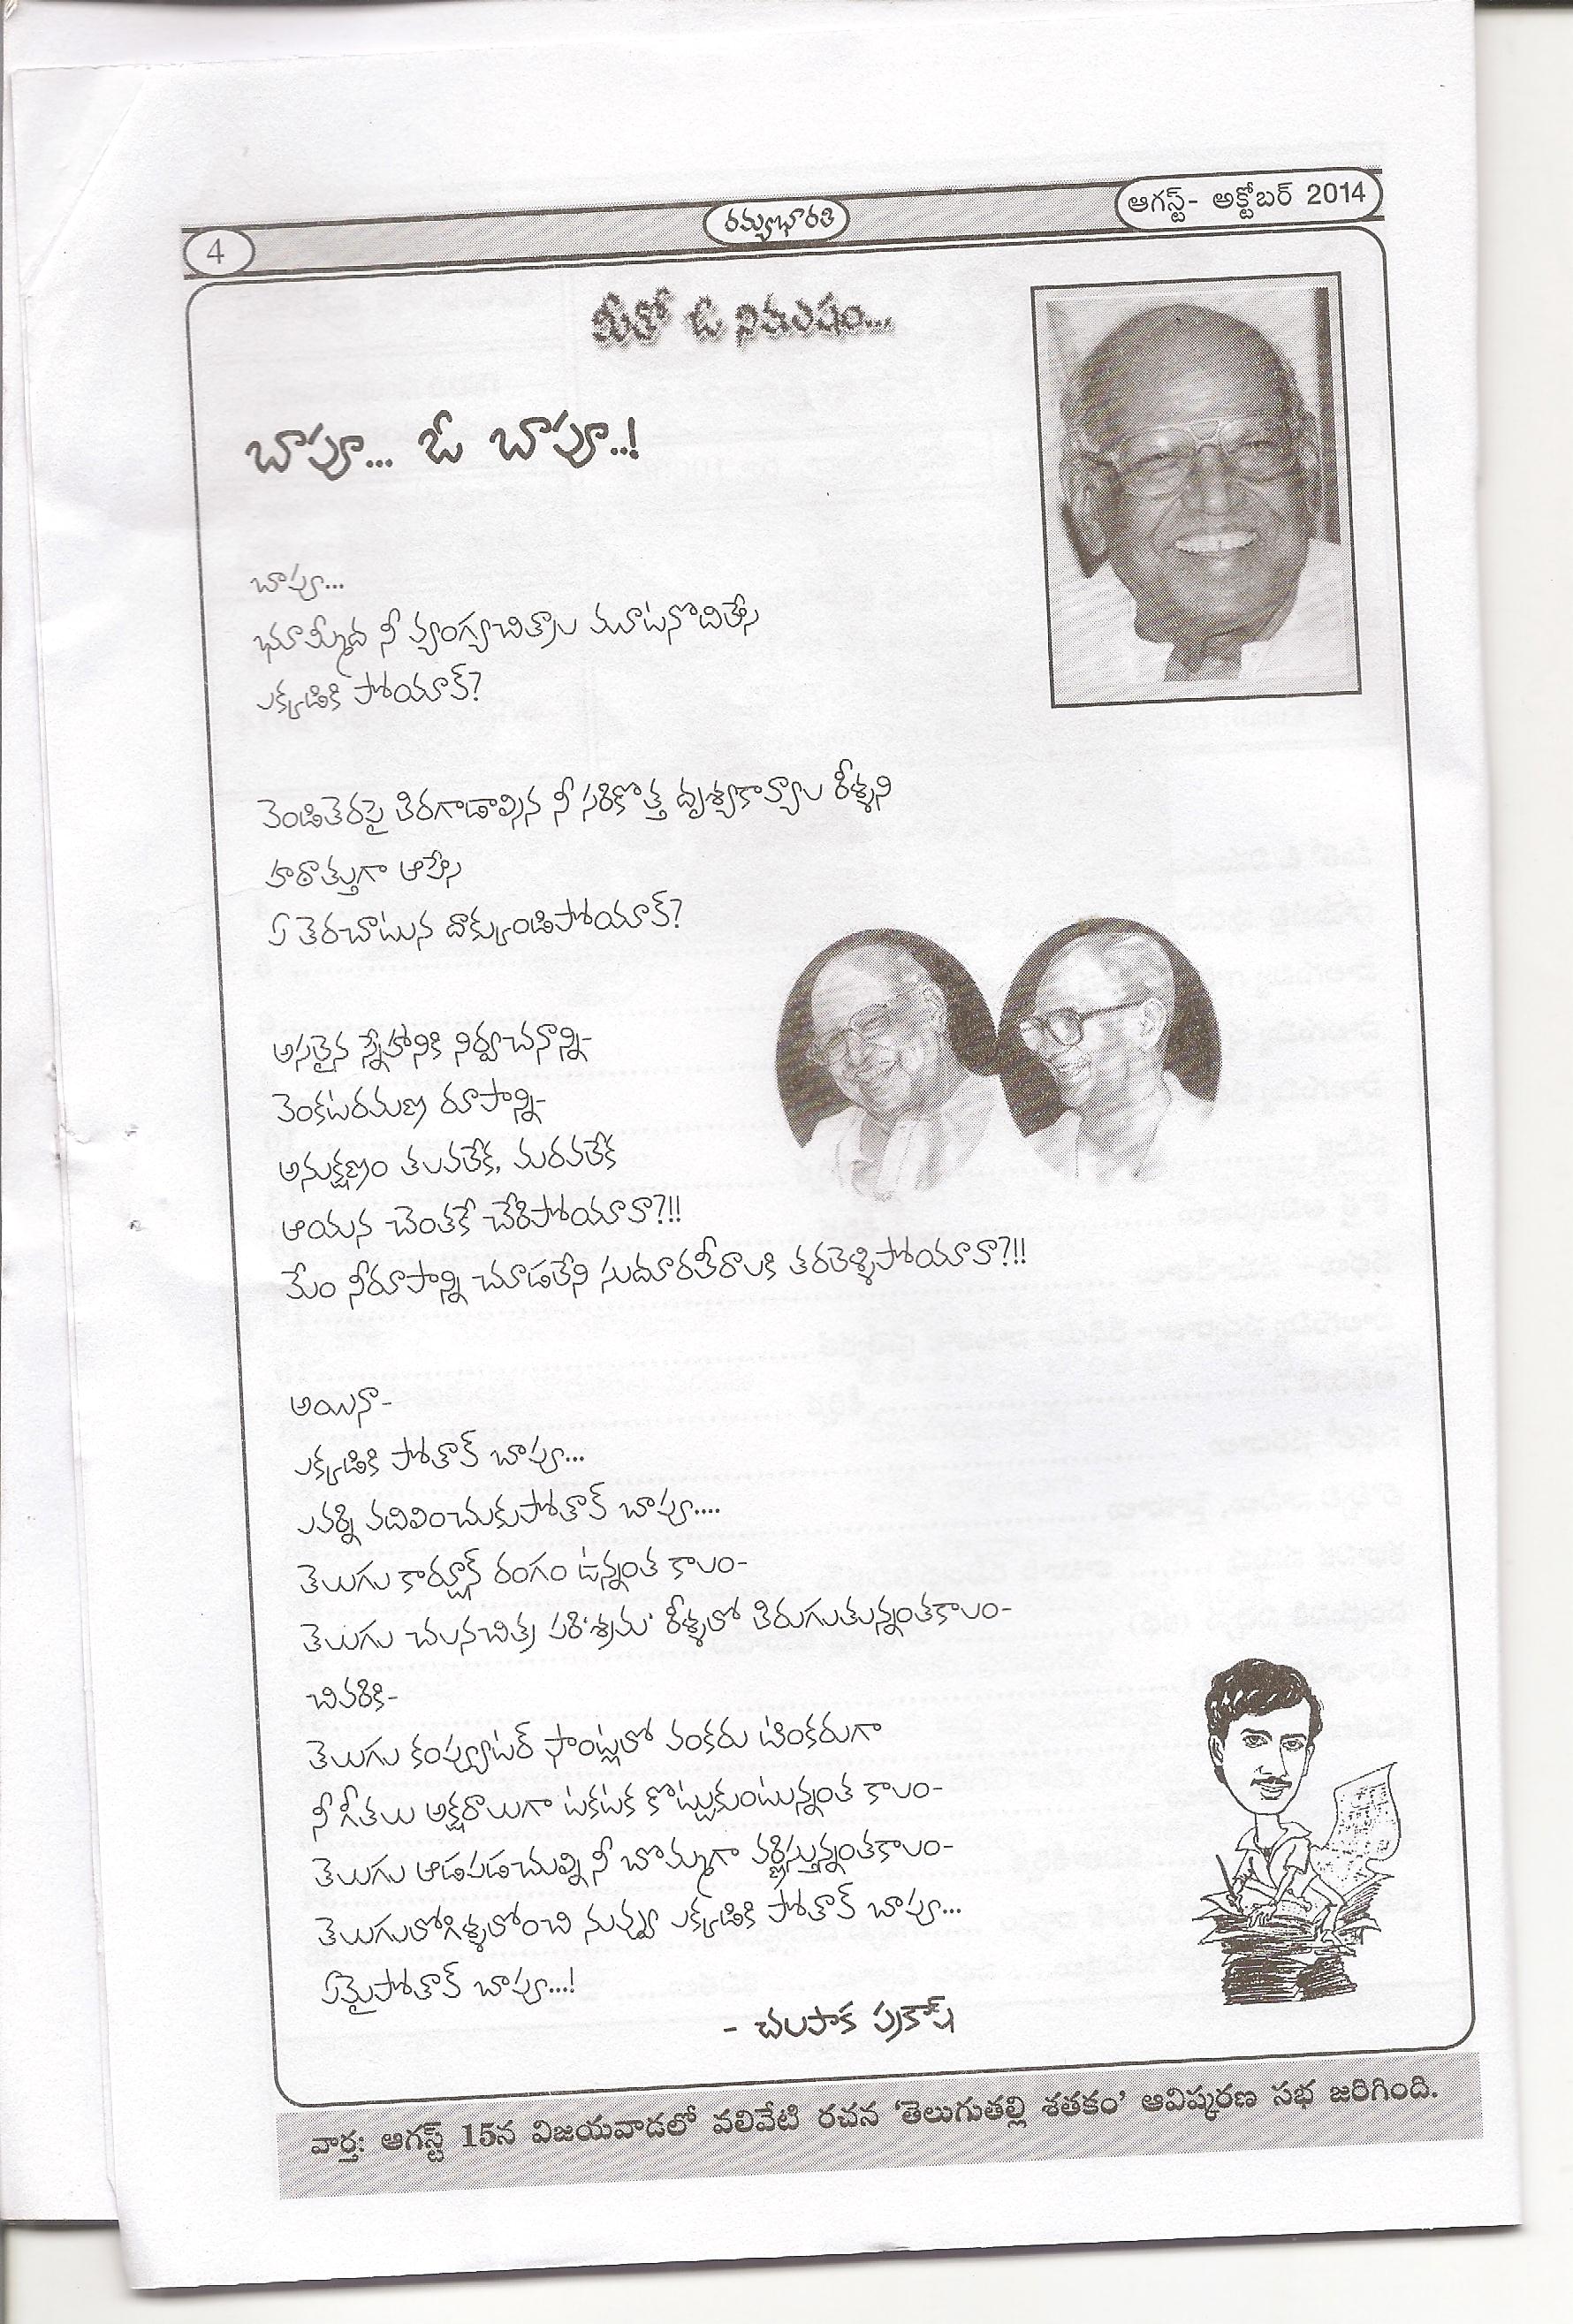 4
రమ్యభారతి
ఆగస్ట్- అక్టోబర్ 2014
మీతో ఓ నిమిషం...
బాపూ... ఓ బాపూ..!
బాపూ...
భూమ్మీద నీ వ్యంగ్యచిత్రాల మూటనొదిలేసి
ఎక్కడికి పోయావ్?
వెండితెరపై తిరగాడాల్సిన నీ సరికొత్త దృశ్యకావ్యాల రీళ్ళని
హఠాత్తుగా ఆపేసి
ఏ తెరచాటున దాక్కుండిపోయావ్?
అసలైన స్నేహానికి నిర్వచనాన్ని-
వెంకటరమణ రూపాన్ని-
అనుక్షణం తలవలేక, మరవలేక
ఆయన చెంతకే చేరిపోయావా?!!
మేం నీరూపాన్ని చూడలేని సుదూరతీరాలకి తరలెళ్ళిపోయావా?!!
అయినా-
ఎక్కడికి పోతావ్ బాపూ...
ఎవర్ని వదిలించుకుపోతావ్ బాపూ....
తెలుగు కార్టూన్ రంగం ఉన్నంత కాలం-
తెలుగు చలనచిత్ర పరి'శ్రమ' రీళ్ళలో తిరుగుతున్నంతకాలం-
చివరికి-
తెలుగు కంప్యూటర్ ఫాంట్లలో వంకరు టింకరుగా
నీ గీతలు అక్షరాలుగా టకటక కొట్టుకుంటున్నంత కాలం-
తెలుగు ఆడపడచుల్ని నీ బొమ్మగా వర్ణిస్తున్నంతకాలం-
తెలుగులోగిళ్ళలోంచి నువ్వు ఎక్కడికి పోతావ్ బాపూ...
ఏమైపోతావ్ బాపూ...!
- చలపాక ప్రకాష్
వార్త: ఆగస్ట్ 15న విజయవాడలో వలివేటి రచన 'తెలుగుతల్లి శతకం' ఆవిష్కరణ సభ జరిగింది.